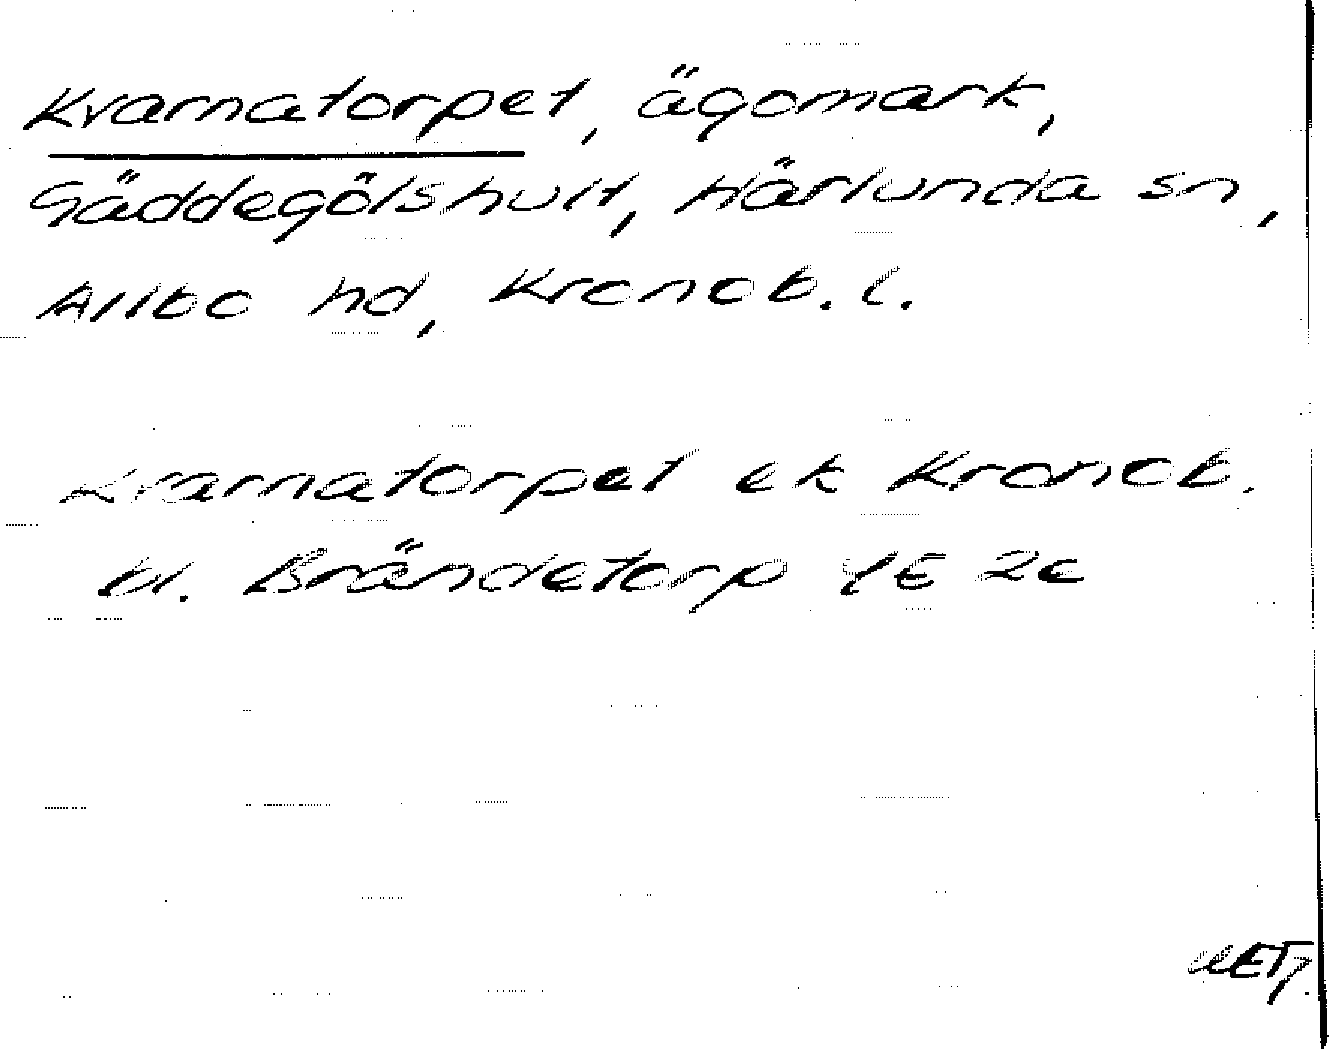 Kvarnatorpet, ägomark,
Gäddegölshult, Härlunda sn,
Allbo hd, Kronob. l.
Kvarnatorpet ek Kronob.
bl. Brändetorp 1E 2c